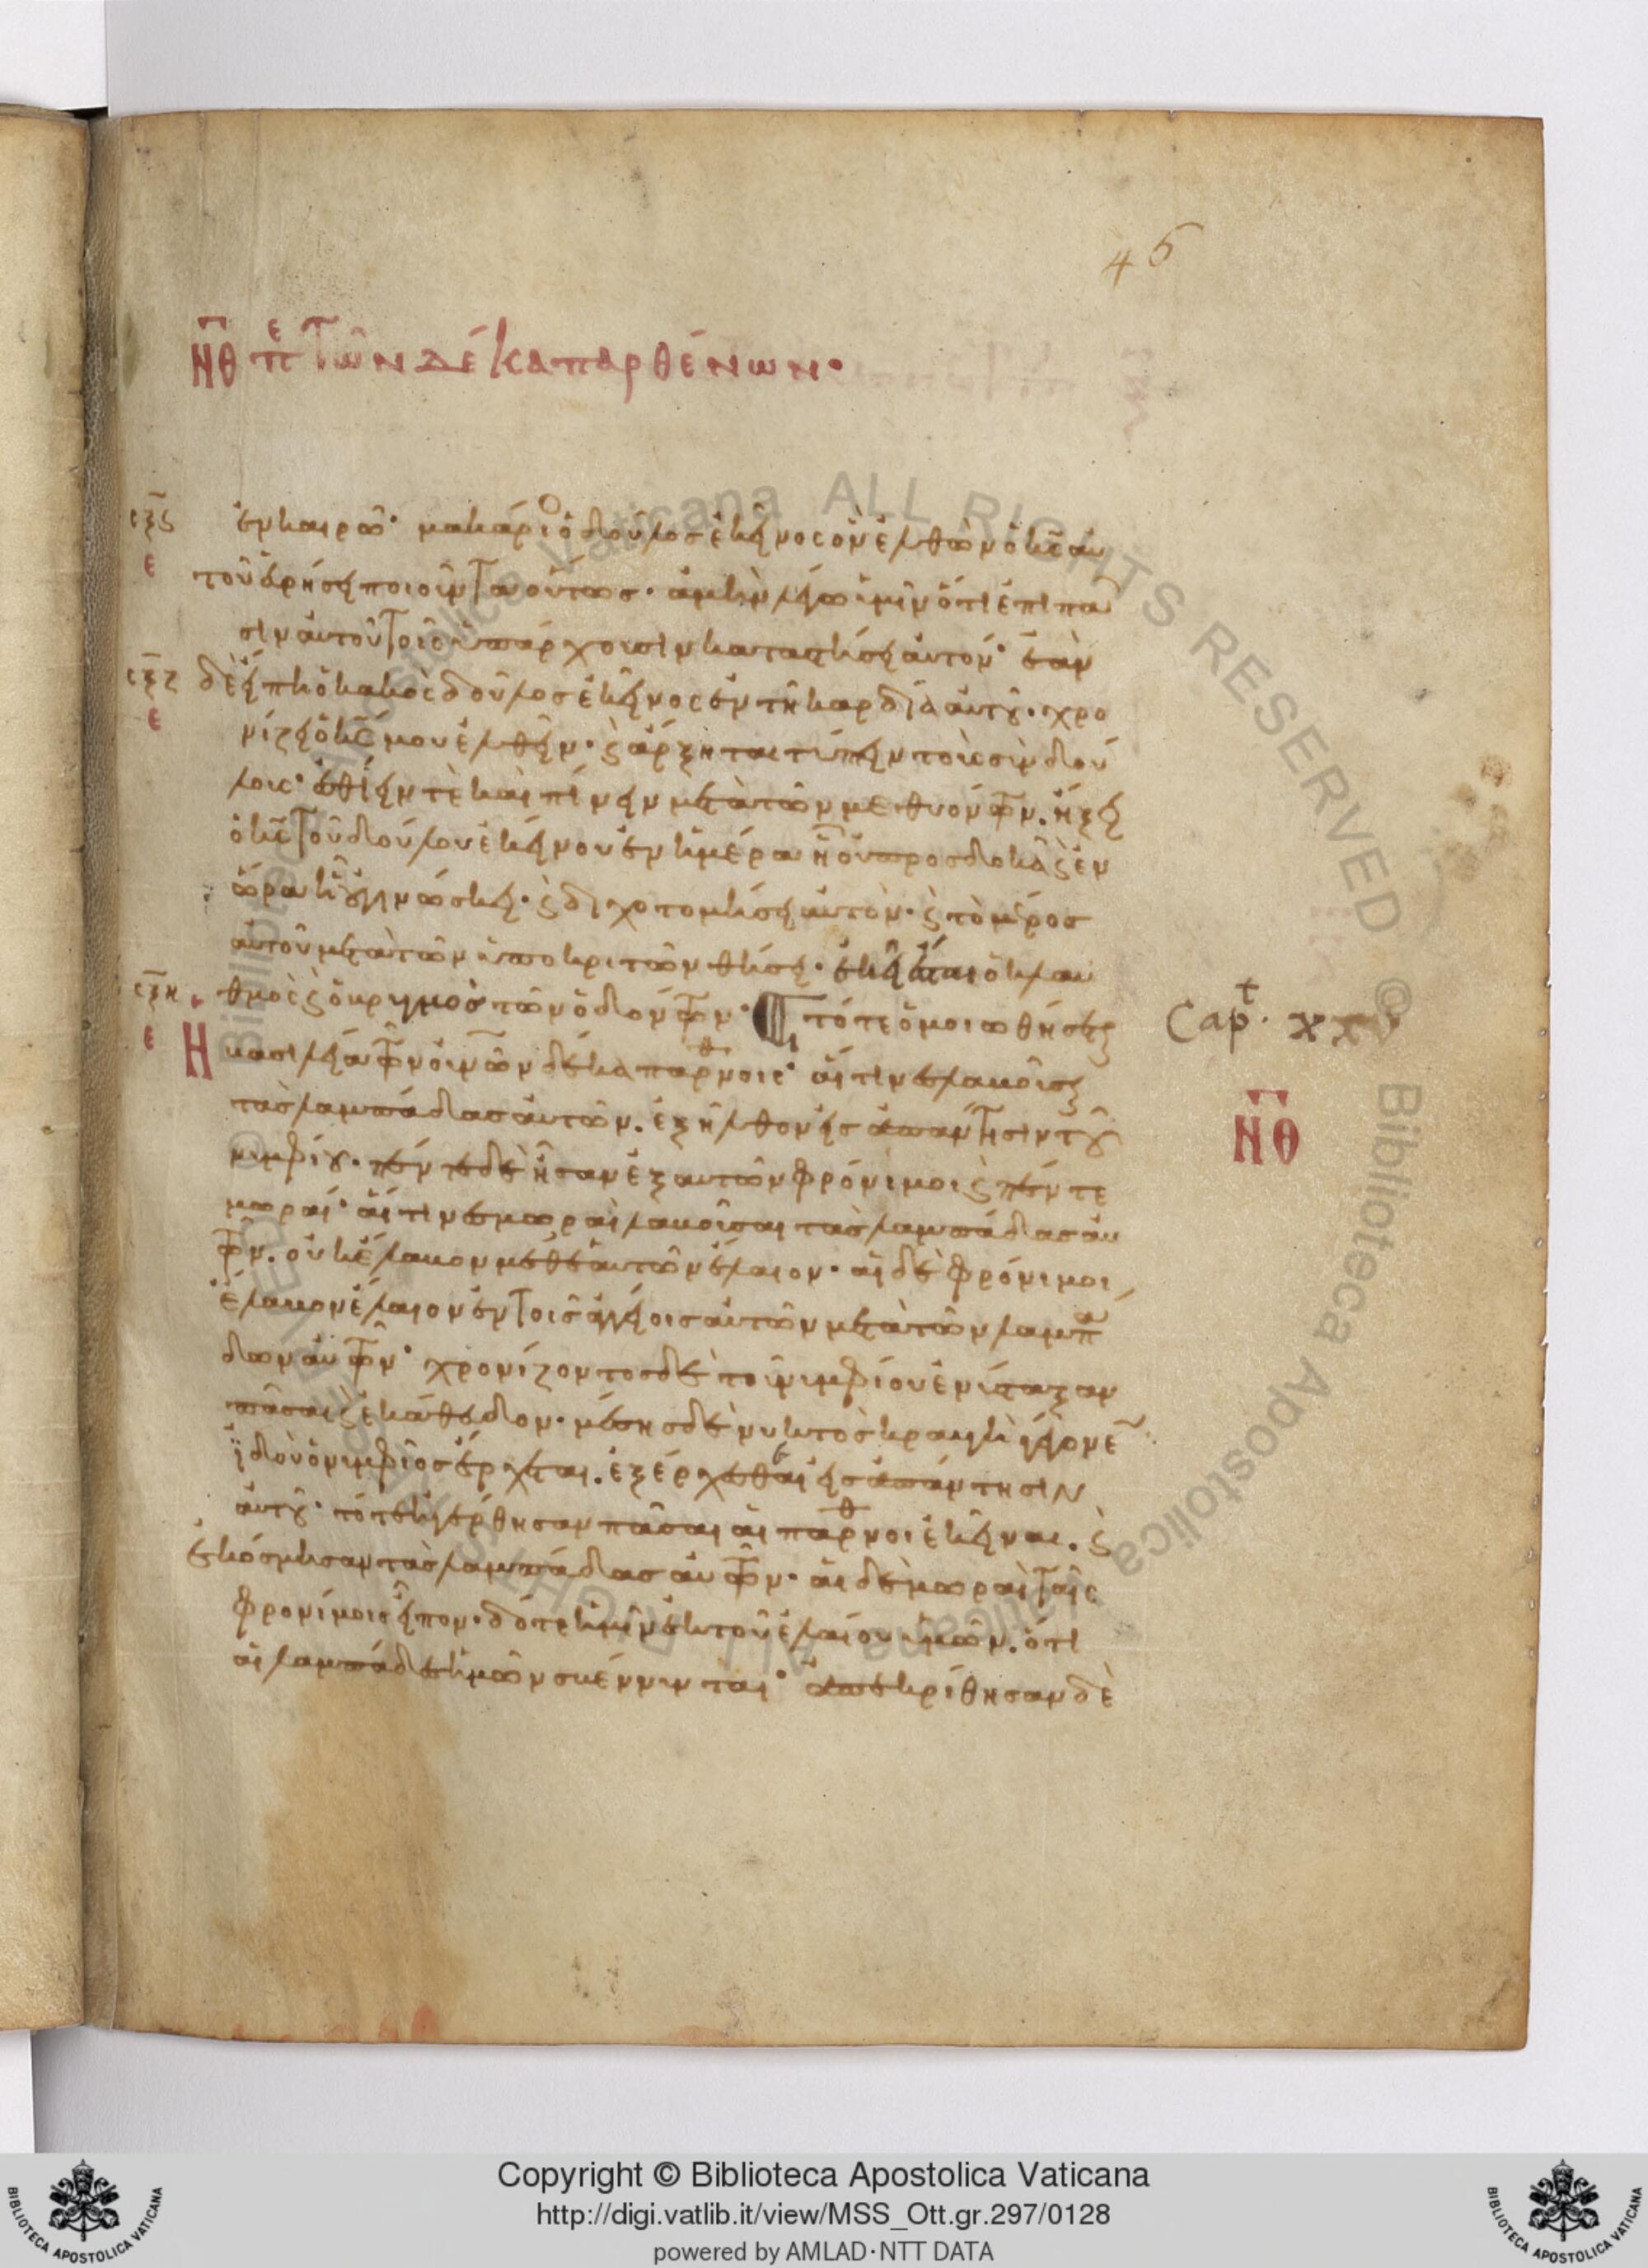 46
ΝΘ πε Τῶν δέκα παρθένων·
σξς ἐν καιρῶ· μακάριο ὁ δοῦλος ἐκεῖνος ὃν ἐλθὼν ὁ κς αυ
ε τοῦ εὑρήσει ποιοῦντα οὕτως· ἀμὴν λέγω ὑμῖν ὅτι ἐπὶ πα
σιν αὐτοῦ τοῖς ὑπάρχουσιν καταστήσει αὐτόν· ἐὰν
σξζ δὲ εἴπη ὁ κακὸς δοῦλος ἐκεῖνος ἐν τῆ καρδία αὐτοῦ· χρο
ε νίζει ὁ κς μου ἐλθεῖν· ϗ ἄρξηται τύπτειν τοὺς συνδού
λους· ἐσθίειν τὲ καὶ πίνειν μετὰ τῶν μεθυόντων. ἥξει
ὁ κς τοῦ δούλου ἐκείνου ἐν ἡμέρα ἧ οὐ προσδοκᾶ ϗ ἐν
ὥρα ἧ οὐ γινώσκει· ϗ διχοτομήσει αὐτὸν· ϗ τὸ μέρος
αὐτοῦ μετὰ τῶν ὑποκριτῶν θήσει· ἐκεῖ ἔσται ὁ κλαυ
σξη θμὸς ϗ ὁ βρυγμὸς τῶν ὀδόντων· τότε ὁμοιωθήσεται
ε Η βασιλεία τῶν οὐρανῶν δέκα παρθνοις· αἵτινες λαβοῦσαι
τὰς λαμπάδας αὐτῶν. ἐξῆλθον εἰς ἀπάντησιν τοῦ
νυμφίου· πέντε δὲ ἦσαν ἐξ αὐτῶν φρόνιμοι ϗ πέντε
μωραί· αἵτινες μωραὶ λαβοῦσαι τὰς λαμπάδας αὐ
τῶν. οὐκ ἔλαβον μεθ' ἑαυτῶν ἔλαιον· αἱ δὲ φρόνιμοι
ἔλαβον ἔλαιον ἐν τοῖς ἀγγείοις αὐτῶν μετὰ τῶν λαμπά
δων αὐτῶν· χρονίζοντος δὲ τοῦ νυμφίου ἐνύσταξαν
πᾶσαι ϗ ἐκάθευδον· μέσης δὲ νυκτὸς κραυγὴ γέγονε
ἰδοὺ ὁ νυμφίος ἔρχεται. ἐξέρχεσθαι εἰς ἀπάντησιν
αὐτοῦ· τότε ἠγέρθησαν πᾶσαι αἱ παρθνοι ἐκεῖναι. ϗ
ἐκόσμησαν τὰς λαμπάδας αὐτῶν· αἱ δὲ μωραὶ ταῖς
φρονίμοις εἶπον· δότε ἡμῖν ἐκ τοῦ ἐλαίου ὑμῶν. ὅτι
αἱ λαμπάδες ἡμῶν σβέννυνται· ἀπεκρίθησαν δὲ
Capt. xxv
ΝΘ
Copyright © Biblioteca Apostolica Vaticana
http://digi.vatlib.it/view/MSS_Ott.gr.297/0128
powered by AMLAD·NTT DATA
BIBLIOTECA APOSTOLICA VATICANA
BIBLIOTECA APOSTOLICA VATICANA
© Biblioteca Apostolica Vaticana ALL RIGHTS RESERVED © Biblioteca Apostolica Vaticana ALL RIGHTS RESERVED